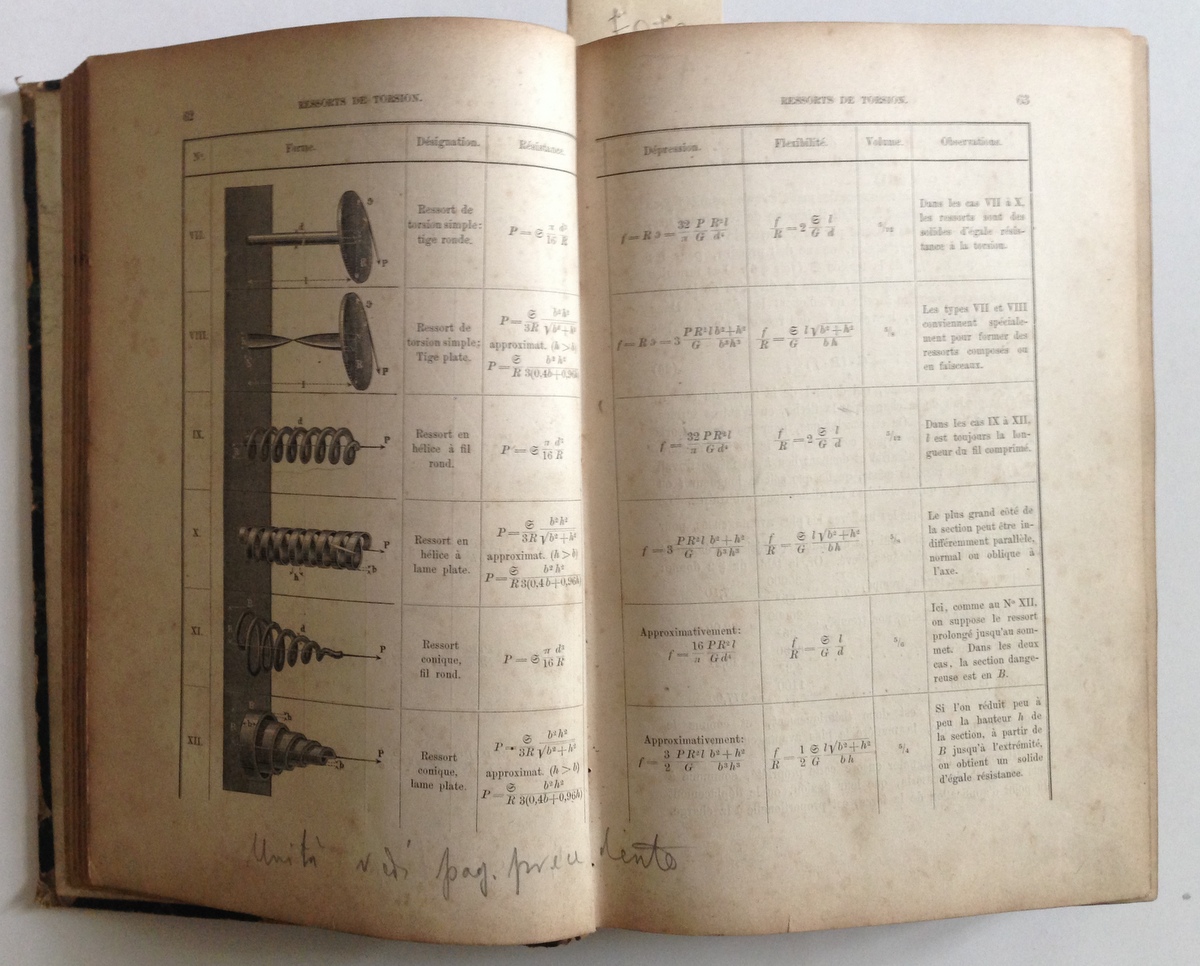 62
RESSORTS DE TORSION.
Nº.
Forme.
Désignation.
Résistance.
VII.
Ressort de
torsion simple:
tige ronde.
P = 𝔖 π/16 d³/R
VIII.
Ressort de
torsion simple:
Tige plate.
P = 𝔖/3R b²h²/√b²+h²
approximat. (h > b)
P = 𝔖/R b²h²/3(0,4b+0,96h)
IX.
Ressort en
hélice à fil
rond.
P = 𝔖 π/16 d³/R
X.
Ressort en
hélice à
lame plate.
P = 𝔖/3R b²h²/√b²+h²
approximat. (h > b)
P = 𝔖/R b²h²/3(0,4b+0,96h)
XI.
Ressort
conique,
fil rond.
P = 𝔖 π/16 d³/R
XII.
Ressort
conique,
lame plate.
P = 𝔖/3R b²h²/√b²+h²
approximat. (h > b)
P = 𝔖/R b²h²/3(0,4b+0,96h)
Unità vedi pag. precedente
RESSORTS DE TORSION.
63
Dépression.
Flexibilité.
Volume.
Observations.
f = R ϑ = 32/π P/G R²l/d⁴
f/R = 2 𝔖/G l/d
Dans les cas VII à X,
les ressorts sont des
solides d'égale résis-
tance à la torsion.
f = R ϑ = 3 PR²l/G b²+h²/b³h³
f/R = 𝔖/G l√b²+h²/bh
Les types VII et VIII
conviennent spéciale-
ment pour former des
ressorts composés ou
en faisceaux.
f = 32/π PR²l/Gd⁴
f/R = 2 𝔖/G l/d
Dans les cas IX à XII,
l est toujours la lon-
gueur du fil comprimé.
f = 3 PR²l/G b²+h²/b³h³
f/R = 𝔖/G l√b²+h²/bh
Le plus grand côté de
la section peut être in-
différemment parallèle,
normal ou oblique à
l'axe.
Approximativement:
f = 16/π PR²l/Gd⁴
f/R = 𝔖/G l/d
Ici, comme au Nº XII,
on suppose le ressort
prolongé jusqu'au som-
met. Dans les deux
cas, la section dange-
reuse est en B.
Approximativement:
f = 3/2 PR²l/G b²+h²/b³h³
f/R = 1/2 𝔖/G l√b²+h²/bh
Si l'on réduit peu à
peu la hauteur h de
la section, à partir de
B jusqu'à l'extrémité,
on obtient un solide
d'égale résistance.